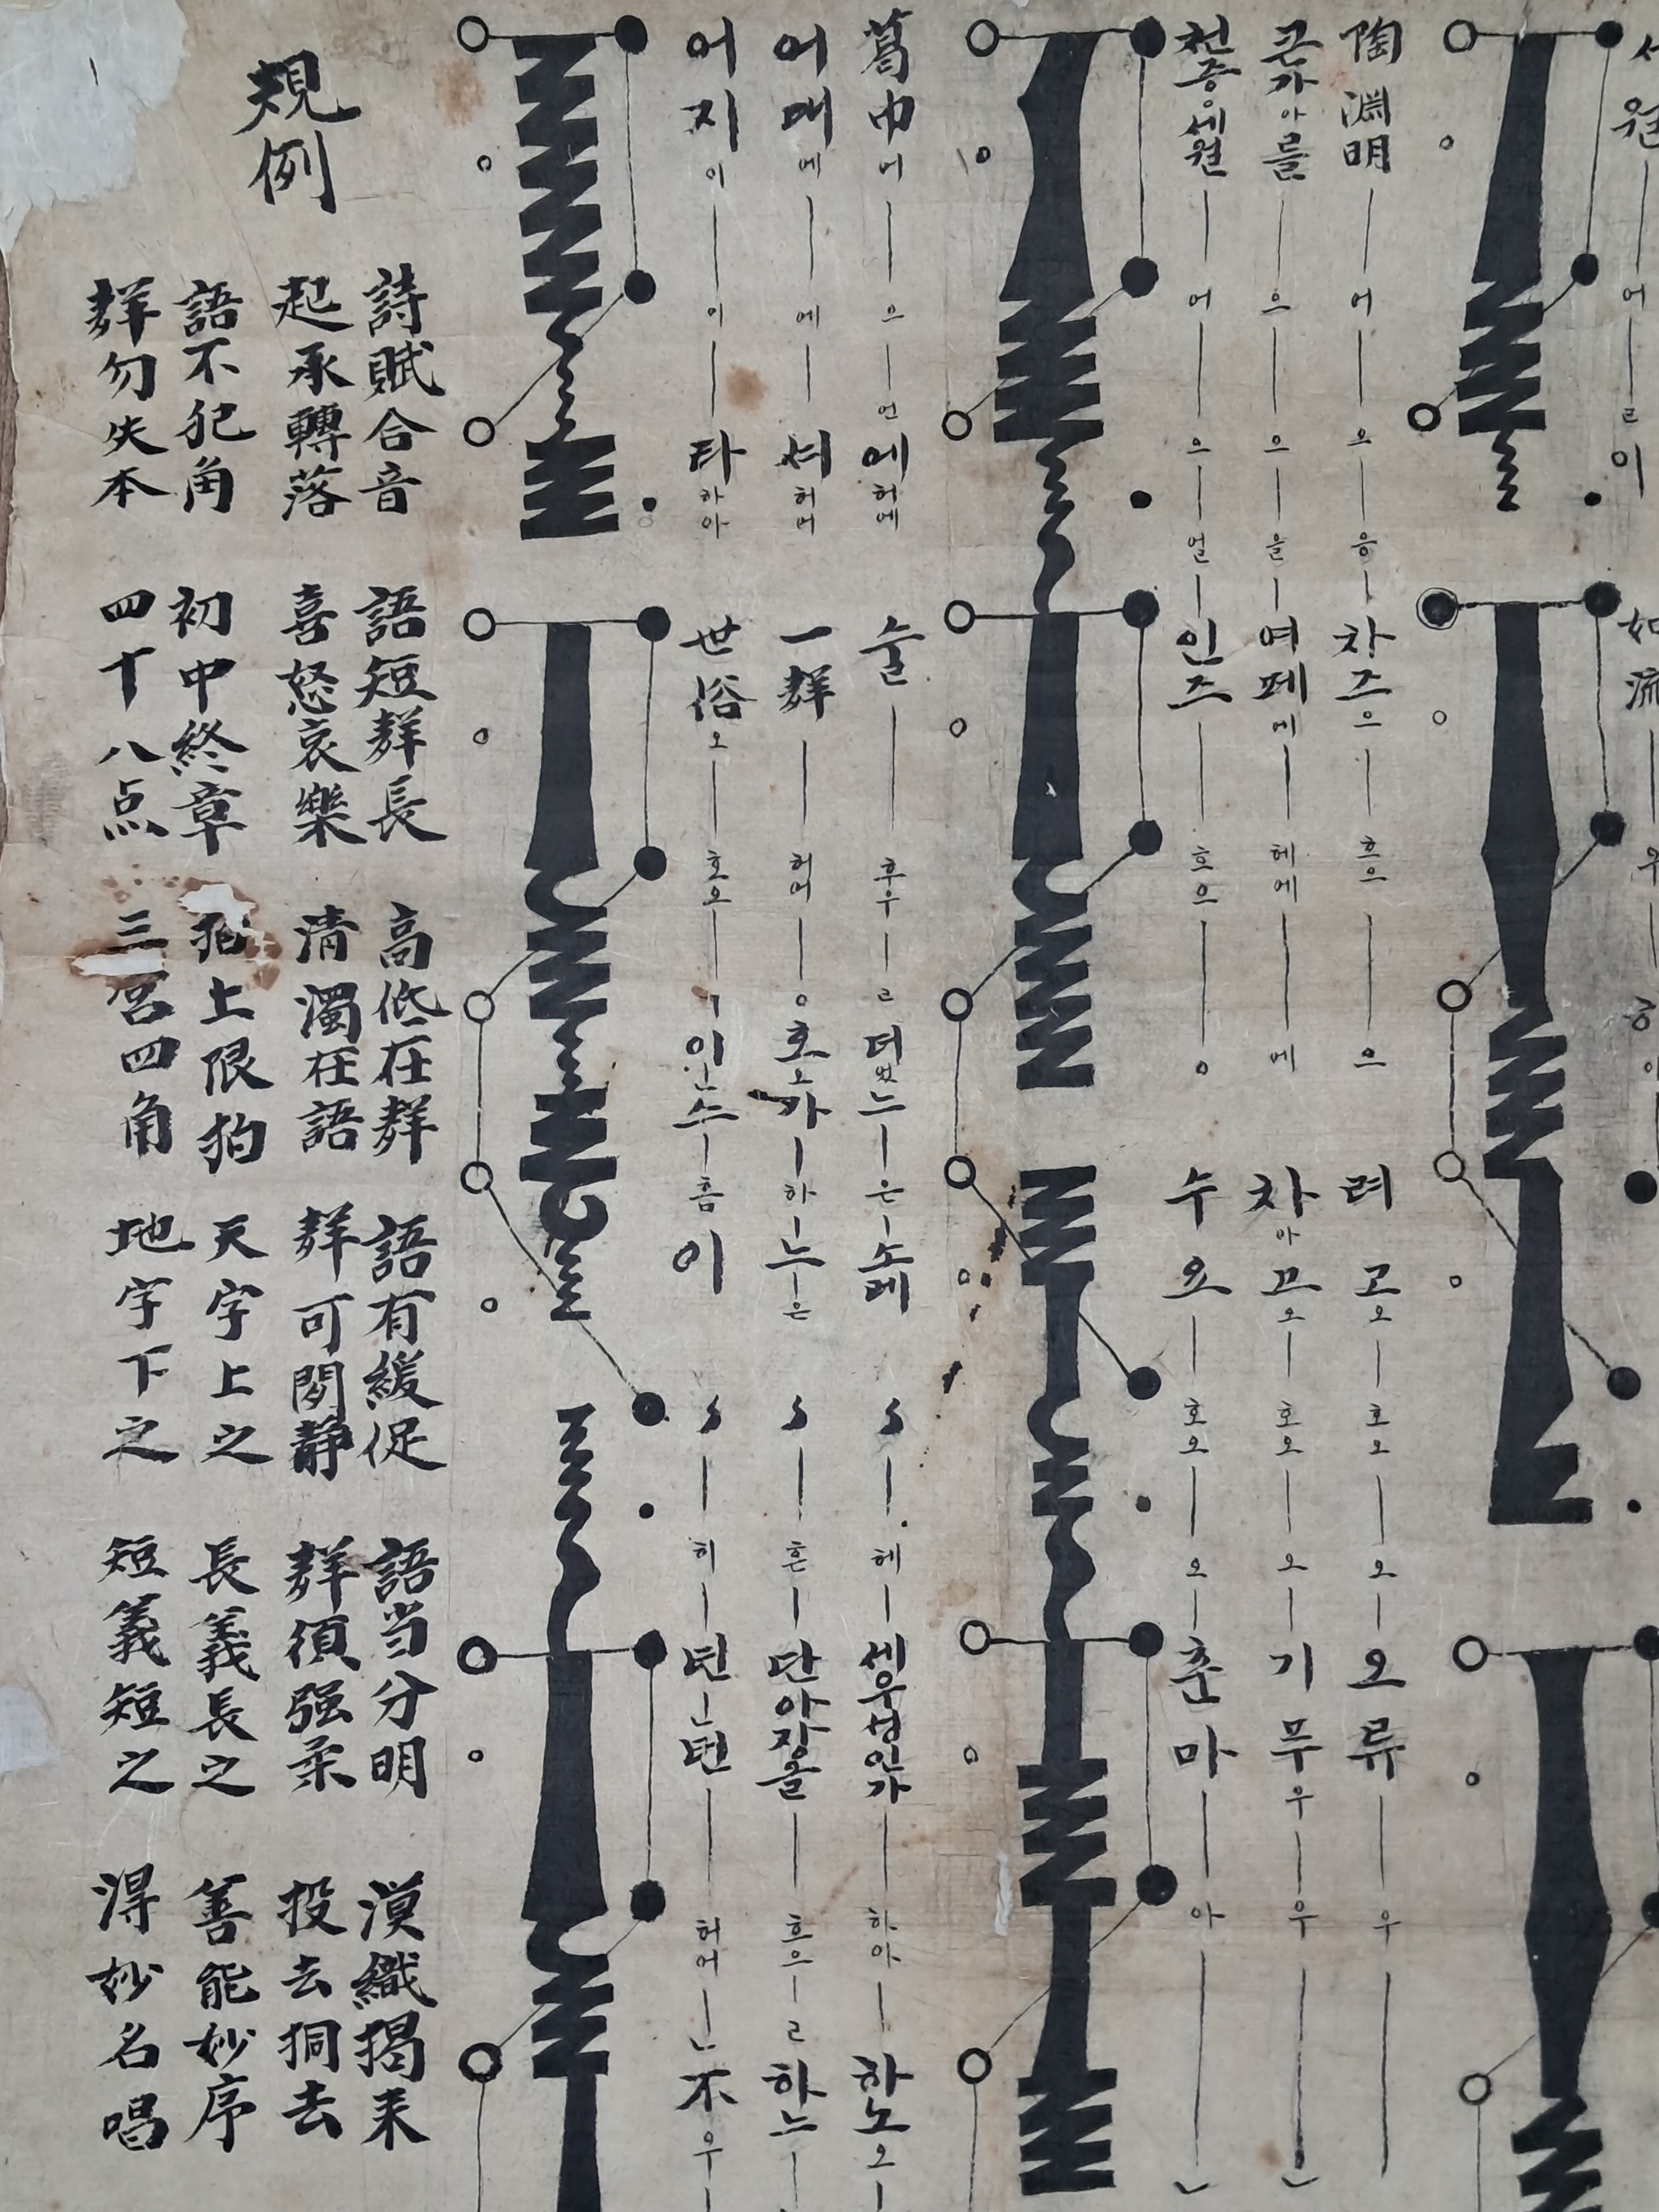 陶淵明 어 오 응 차즈으 흐으 으 려고오 호오 오 오류 우
근가아를 으 으 을 여페에 헤에 에 차아끄오 호오 오 기무우 우
천증으세월 어 으 얼 인즈 흐으 ㅇ 수요 호오 오 춘마 아
葛巾어 으 언 에허에 술 후우 ㄹ 은 소레 헤 하아 하노오
어대에 에 셔허어 一群 허어 ㅇ 호오가 하 누 은 흔 단아장을 흐으 ㄹ 하느
어지이 이 타하아 世俗오 호오 ㄱ 흠 이 히 뎐ㄴ뎐 허어 ㄴ 不우
規例
詩賦合音 語短群長 高低在群 語有緩促 語当分明 漠織揭来
起承轉落 喜怒哀樂 清濁在語 群可閑静 群須强柔 投去挏去
語不犯角 初中終章 拍上限拍 天字上之 長義長之 善能妙序
群勿失本 四十八点 三宮四角 地字下之 短義短之 得妙名唱